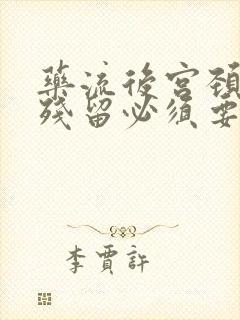 藥流後宮頸
殘留必須要
李賈許